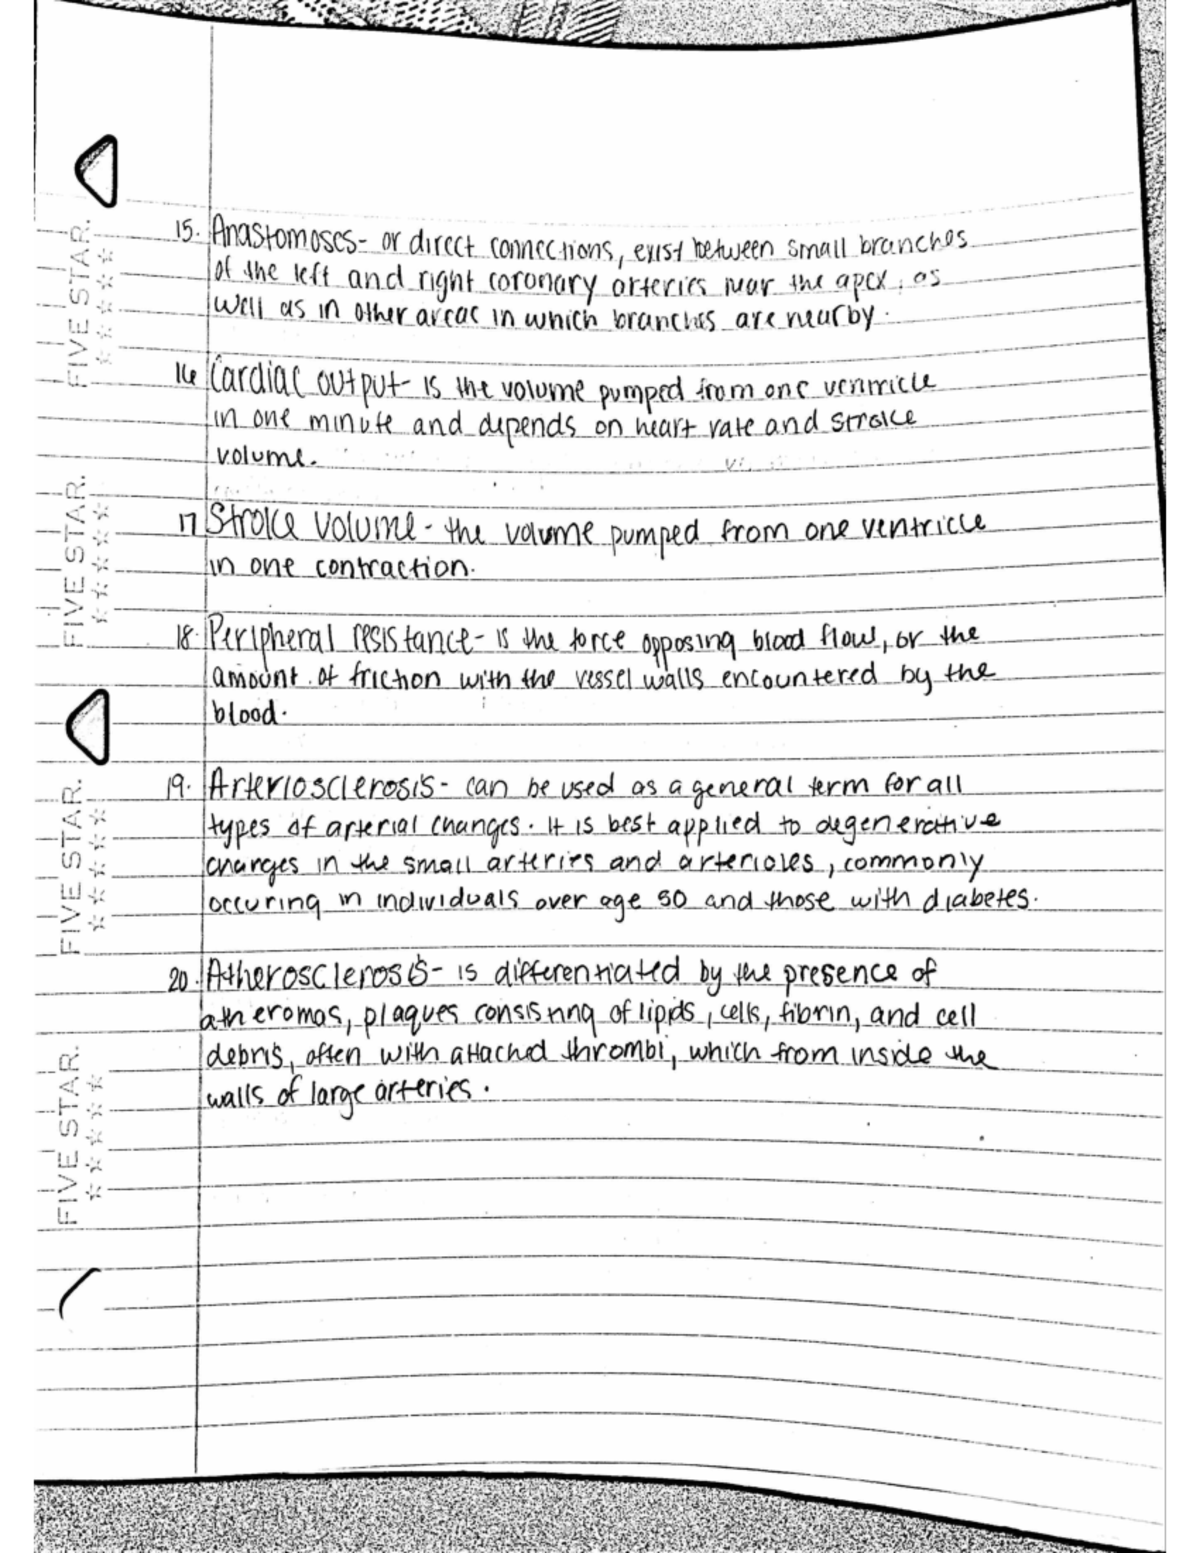 15. Anastomoses- or direct connections, exist between small branches
of the left and right coronary arteries near the apex, as
well as in other areas in which branches are nearby.
16 Cardiac output- is the volume pumped from one ventricle
in one minute and depends on heart rate and stroke
volume.
17 Stroke volume - the volume pumped from one ventricle
in one contraction.
18. Peripheral resistance- is the force opposing blood flow, or the
amount of friction with the vessel walls encountered by the
blood.
19. Arteriosclerosis- can be used as a general term for all
types of arterial changes. It is best applied to degenerative
changes in the small arteries and arterioles, commonly
occuring in individuals over age 50 and those with diabetes.
20. Atherosclerosis- is differentiated by the presence of
atheromas, plaques consisting of lipids, cells, fibrin, and cell
debris, often with attached thrombi, which from inside the
walls of large arteries.
FIVE STAR.
FIVE STAR.
FIVE STAR.
FIVE STAR.